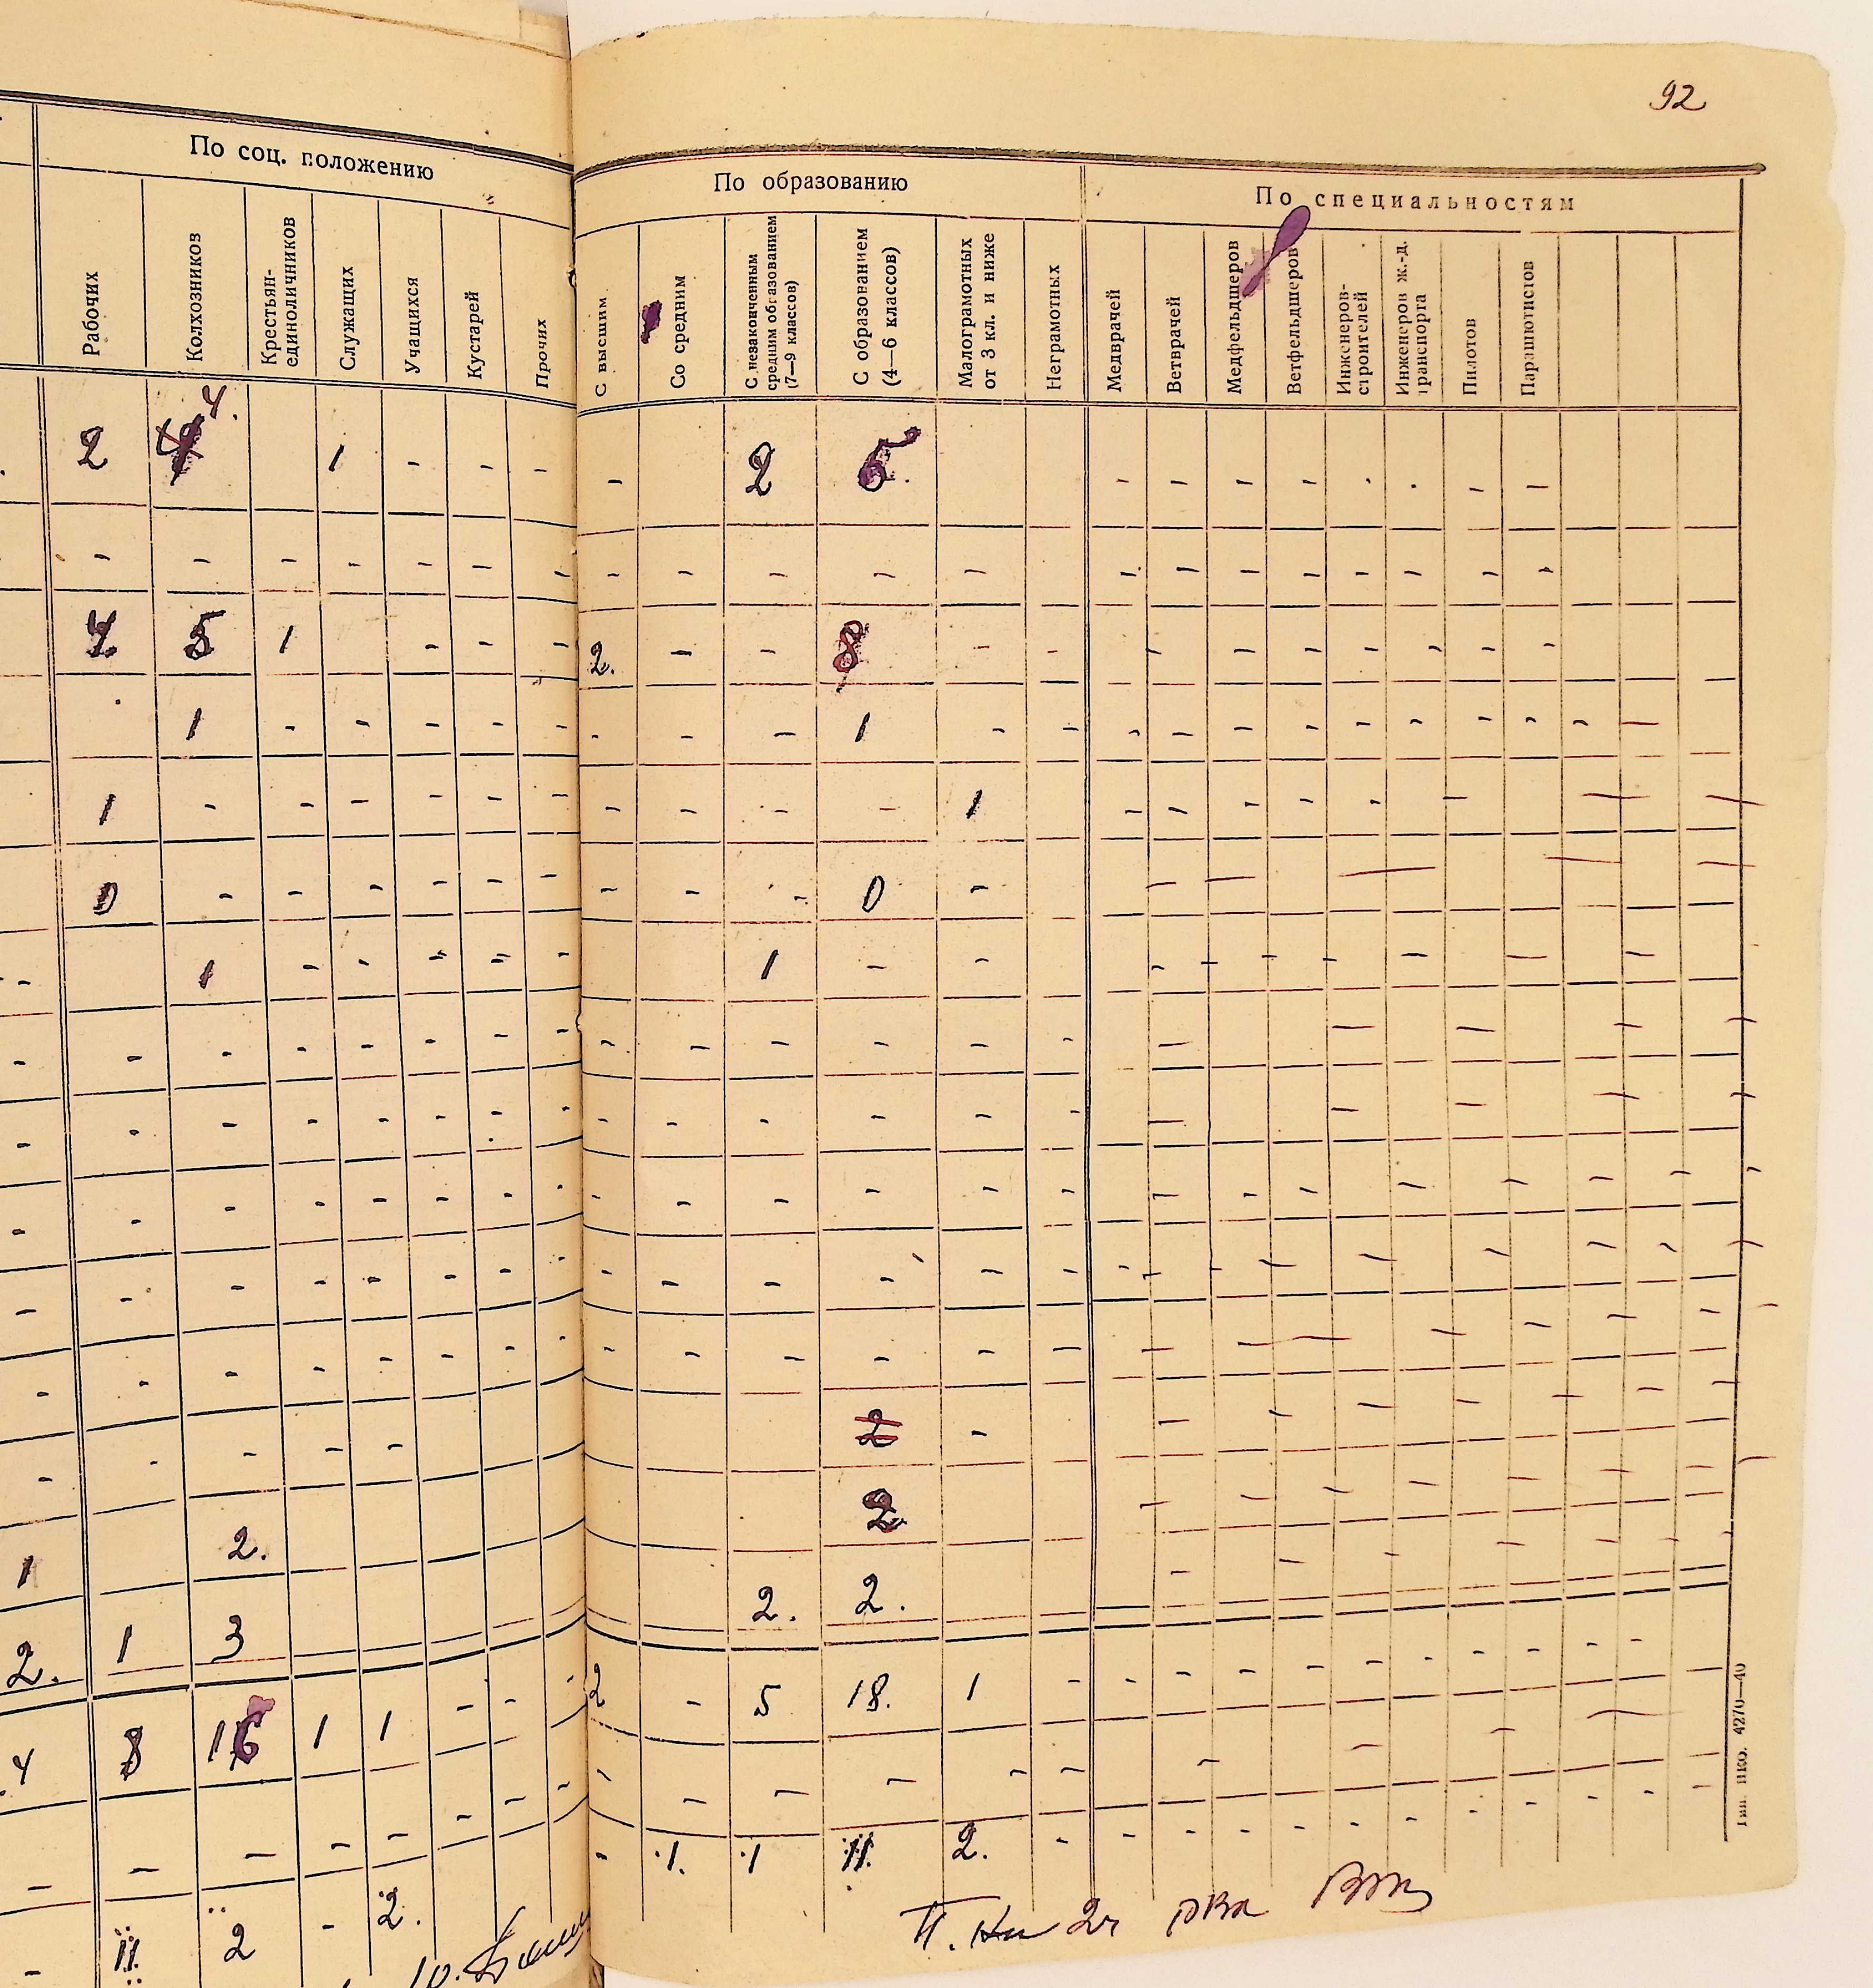 92
По соц. положению
По образованию
По специальностям
Рабочих
Колхозников
Крестьян-
единоличников
Служащих
Учащихся
Кустарей
Прочих
С высшим
Со средним
С незаконченным
средним образованием
(7—9 классов)
С образованием
(4—6 классов)
Малограмотных
от 3 кл. и ниже
Неграмотных
Медврачей
Ветврачей
Медфельдшеров
Ветфельдшеров
Инженеров-
строителей
Инженеров ж.-д.
транспорта
Пилотов
Парашютистов
4.
2 1 - - - - 2 - - - - - -
- - - - - - - - - - - - - - - - - - - - -
5 1 - - - 2. - - 8 - - - - - - - - -
1 - - - - - - - - 1 - - - - - - - - - - - -
1 - - - - - - - - - - 1 - - - - - -
0 - - - - - - - - 0 -
- 1 - - - - - 1 - -
- - - - - - - - - - - - - -
- - - - - - - - - - - - - -
- - - - - - - - - - - - - -
- - - - - - - - - - - - - -
- - - - - - - - - - - - - -
- - - - 2 -
1 2. 2
2. 1 3 2. 2.
4 8 16 1 1 - - - 2 - 5 18. 1 - - - - - - - - - - -
- - - - - - - - - - - - - -
- 11 2 - 2. - 1. 1 11. 2. - - - - - - - - - - -
Тип. НКО. 4270—40